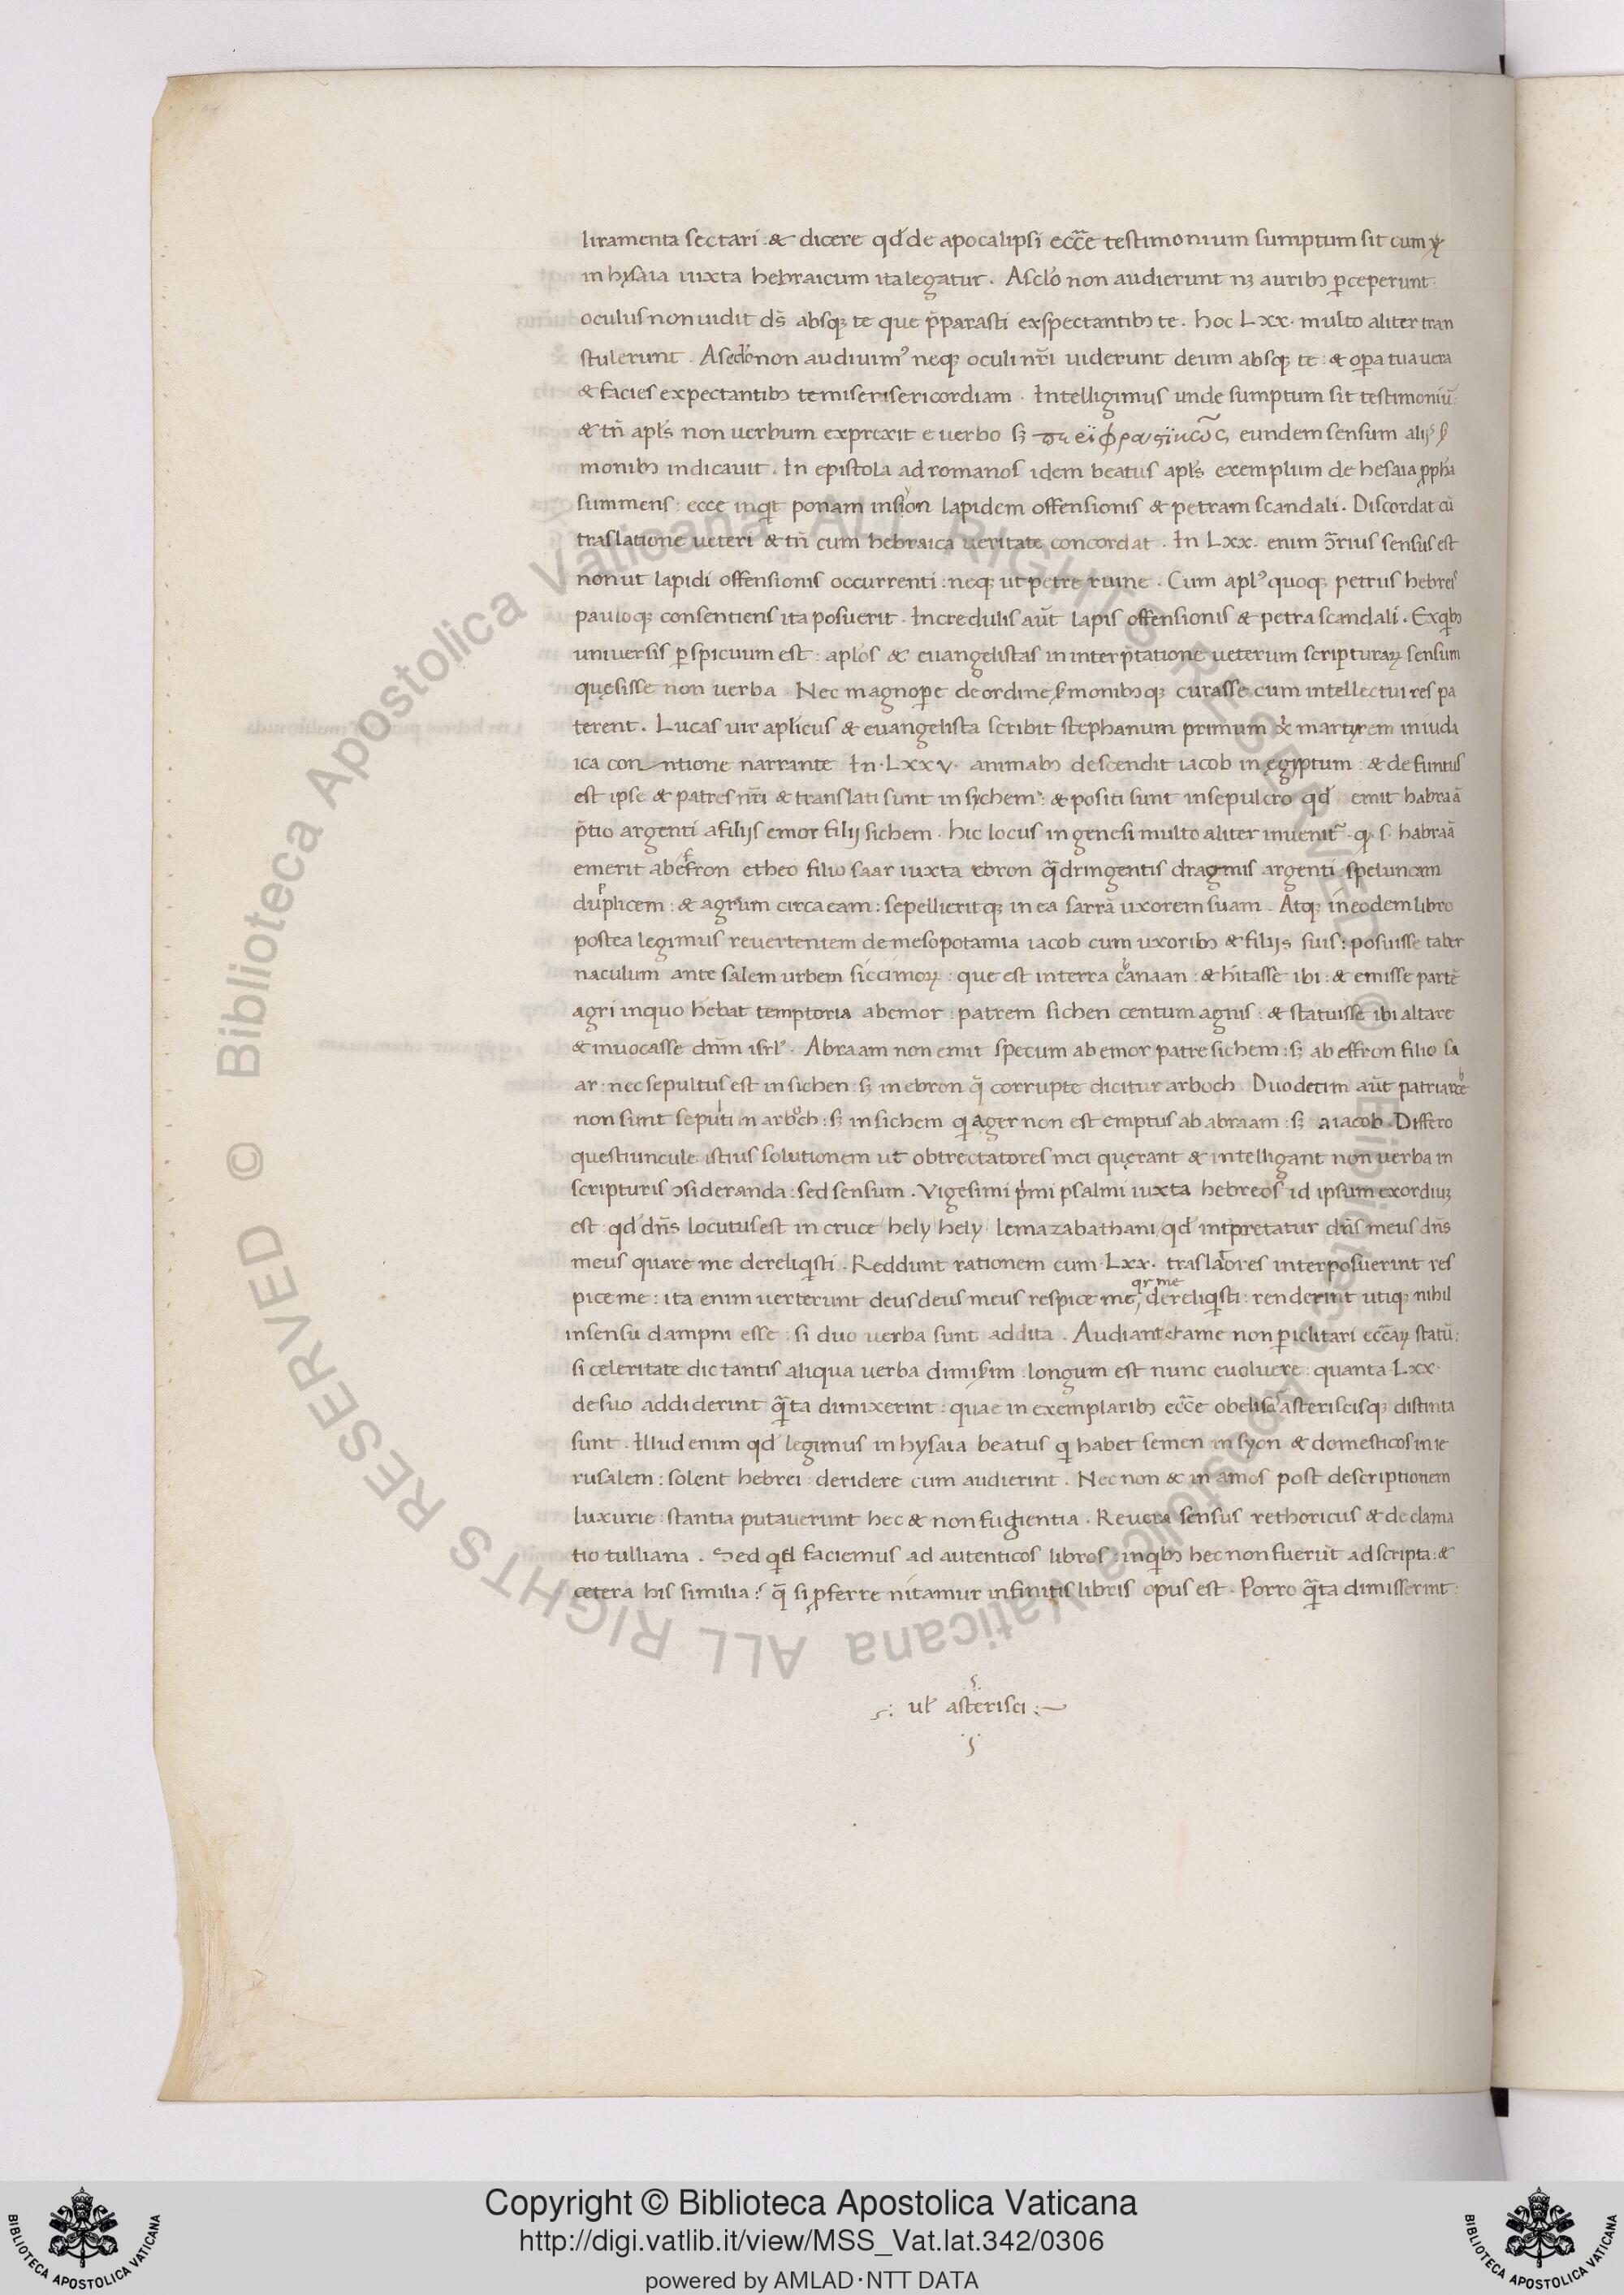 liramenta sectari : & dicere qd' de apocalipsi ecc̄e testimonium sumptum sit cum
in hysaia iuxta hebraicum ita legatur . Asclo non audierunt nꝫ auribꝫ ꝑceperunt :
oculus non uidit ds̄ absqꝫ te que p̄parasti exspectantibꝫ te . hoc Lxx . multo aliter tran
stulerunt . A seclo non audiuimꝰ neqꝫ oculi nr̄i uiderunt deum absqꝫ te : & oꝑa tua uera
& facies expectantibꝫ te miserisericordiam . Intelligimus unde sumptum sit testimoniū :
& tn̄ apl's non uerbum exprexit e uerbo sꝫ eundem sensum
monibꝫ indicauit . In epistola ad romanos idem beatus apl's exemplum de hesaia ꝓpha
summens : ecce inqt ponam in sion lapidem offensionis & petram scandali . Discordat cū
traslatione ueteri & tn̄ cum hebraica ueritate concordat . In Lxx . enim ꝯ̄rius sensus est
non ut lapidi offensionis occurrenti : neqꝫ ut petre ruine . Cum aplꝰ quoqꝫ petrus hebreis
pauloqꝫ consentiens ita posuerit . Incredulis aūt lapis offensionis & petra scandali . Ex qbꝫ
uniuersis ꝑspicuum est : aplos & euangelistas in interp̄tatione ueterum scripturaꝝ sensum
quęsisse non uerba . Nec magnoꝑe de ordine s̄monibꝫqꝫ curasse cum intellectui res pa
terent . Lucas uir aplicus & euangelista scribit stephanum primum martyrem in iuda
ica con ntione narrante In . Lxxv . animabꝫ descendit iacob in ęgyptum : & defuntus
est ipse & patres nr̄i & translati sunt in sychem : & positi sunt in sepulcro qd' emit habraā
p̄tio argenti a filijs emor filij sichem . hic locus in genesi multo aliter inuenit᷑ . q . s . habraā
emerit ab efron etheo filio saar iuxta ebron q̄dringentis dragmis argenti speluncam
duplicem : & agrum circa eam : sepellieritqꝫ in ea sarrā uxorem suam . Atqꝫ in eodem libro
postea legimus reuertentem de mesopotamia iacob cum uxoribꝫ & filijs suis : posuisse taber
naculum ante salem urbem siccimoꝝ : que est in terra chanaan : & h'itasse ibi : & emisse partē
agri in quo h'ebat temptoria ab emor : patrem sichen centum agnis : & statuisse ibi altare
& inuocasse dn̄m isrl' . Abraam non emit specum ab emor patre sichem : sꝫ ab effron filio sa
ar : nec sepultus est in sichen : sꝫ in ebron q̄ corrupte dicitur arboch . Duodecim aūt patriarche
non sunt seputi in arboch : sꝫ in sichem q ager non est emptus ab abraam : sꝫ a iacob . Differo
questiuncule istius solutionem ut obtrectatores mei quęrant & intelligant non uerba in
scripturis ꝯsideranda : sed sensum . Vigesimi p'mi psalmi iuxta hebreos id ipsum exordiuꝫ
est : qd' dn̄s locutus est in cruce / hely hely / lemazabathani / qd' intpretatur dn̄s meus dn̄s
meus quare me dereliqsti . Reddunt rationem cum . Lxx . traslatores interposuerint res
qr me
pice me : ita enim uerterunt deus deus meus respice me, dereliqsti : renderint utiqꝫ nihil
in sensu dampni esse : si duo uerba sunt addita . Audiant & a me non ꝑiclitari ecc̄aꝝ statū :
si celeritate dictantis aliqua uerba dimis̄im . longum est nunc euoluere : quanta . Lxx .
de suo addiderint q̄ta dimixerint : quae in exemplaribꝫ ecc̄e obelisc asterisciqꝫ distinta
sunt . Illud enim qd' legimus in hysaia beatus q habet semen in syon & domesticos in ie
rusalem : solent hebrei : deridere cum audierint . Nec non & in amos post descriptionem
luxurie : stantia putauerunt hec & non fugientia . Reuera sensus rethoricus & declama
tio tulliana . Sed qd faciemus ad autenticos libros : in qbꝫ hec non fuerūt adscripta : &
cetera his similia : q̄ si ꝓferre nitamur infinitis libris opus est . Porro q̄ta dimisserint :
ul' asterisci :
Biblioteca Apostolica Vaticana ALL RIGHTS RESERVED © Biblioteca Apostolica Vaticana ALL RIGHTS RESERVED ©
Copyright © Biblioteca Apostolica Vaticana
http://digi.vatlib.it/view/MSS_Vat.lat.342/0306
powered by AMLAD·NTT DATA
BIBLIOTECA APOSTOLICA VATICANA
BIBLIOTECA APOSTOLICA VATICANA